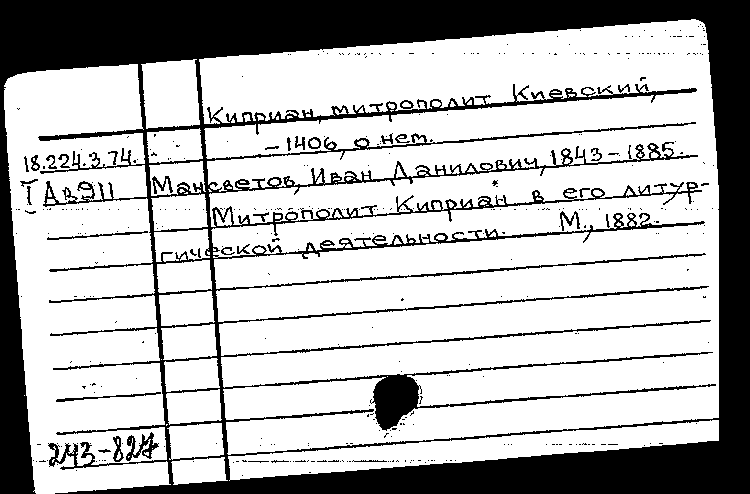 Киприан, митрополит Киевский,
-1406, о нем.
18.224.3.74.
I Ав911 Мансветов, Иван Данилович, 1843-1885.
Митрополит Киприан в его литур-
гической деятельности. М., 1882.
243-827